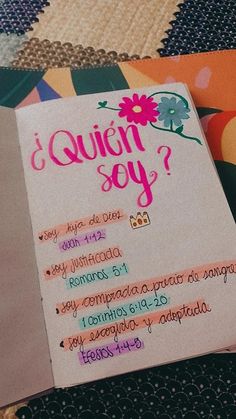 ¿Quién
soy?
soy hija de Dios
Juan 1:12
soy justificada
Romanos 5:1
soy comprada a precio de sangre
1 Corintios 6:19-20
soy escogida y adoptada
Efesios 1:4-5